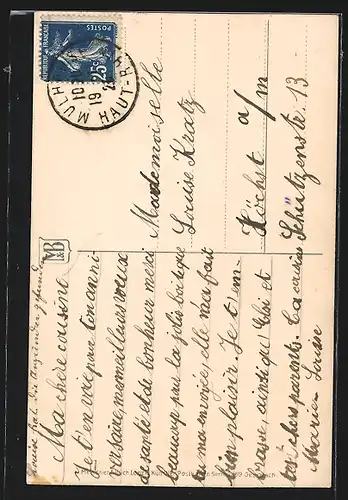 RÉPUBLIQUE FRANÇAISE
POSTES
25c
MULH HAUT-RHIN
10
19
Mademoiselle
Louise Kratz
Höchst a/m
Schützenstr. 13
M&B
Ma chère cousine
Je t'envoie pour ton anni
versaire, mes meilleurs vœux
de santé et de bonheur merci
beaucoup pour la jolie boîte que
tu m'a envoyée, elle m'a fait
plaisir. Je t'em-
brasse, ainsi que Elsi et
tes chers parents. Ta cousine
Marie Louise